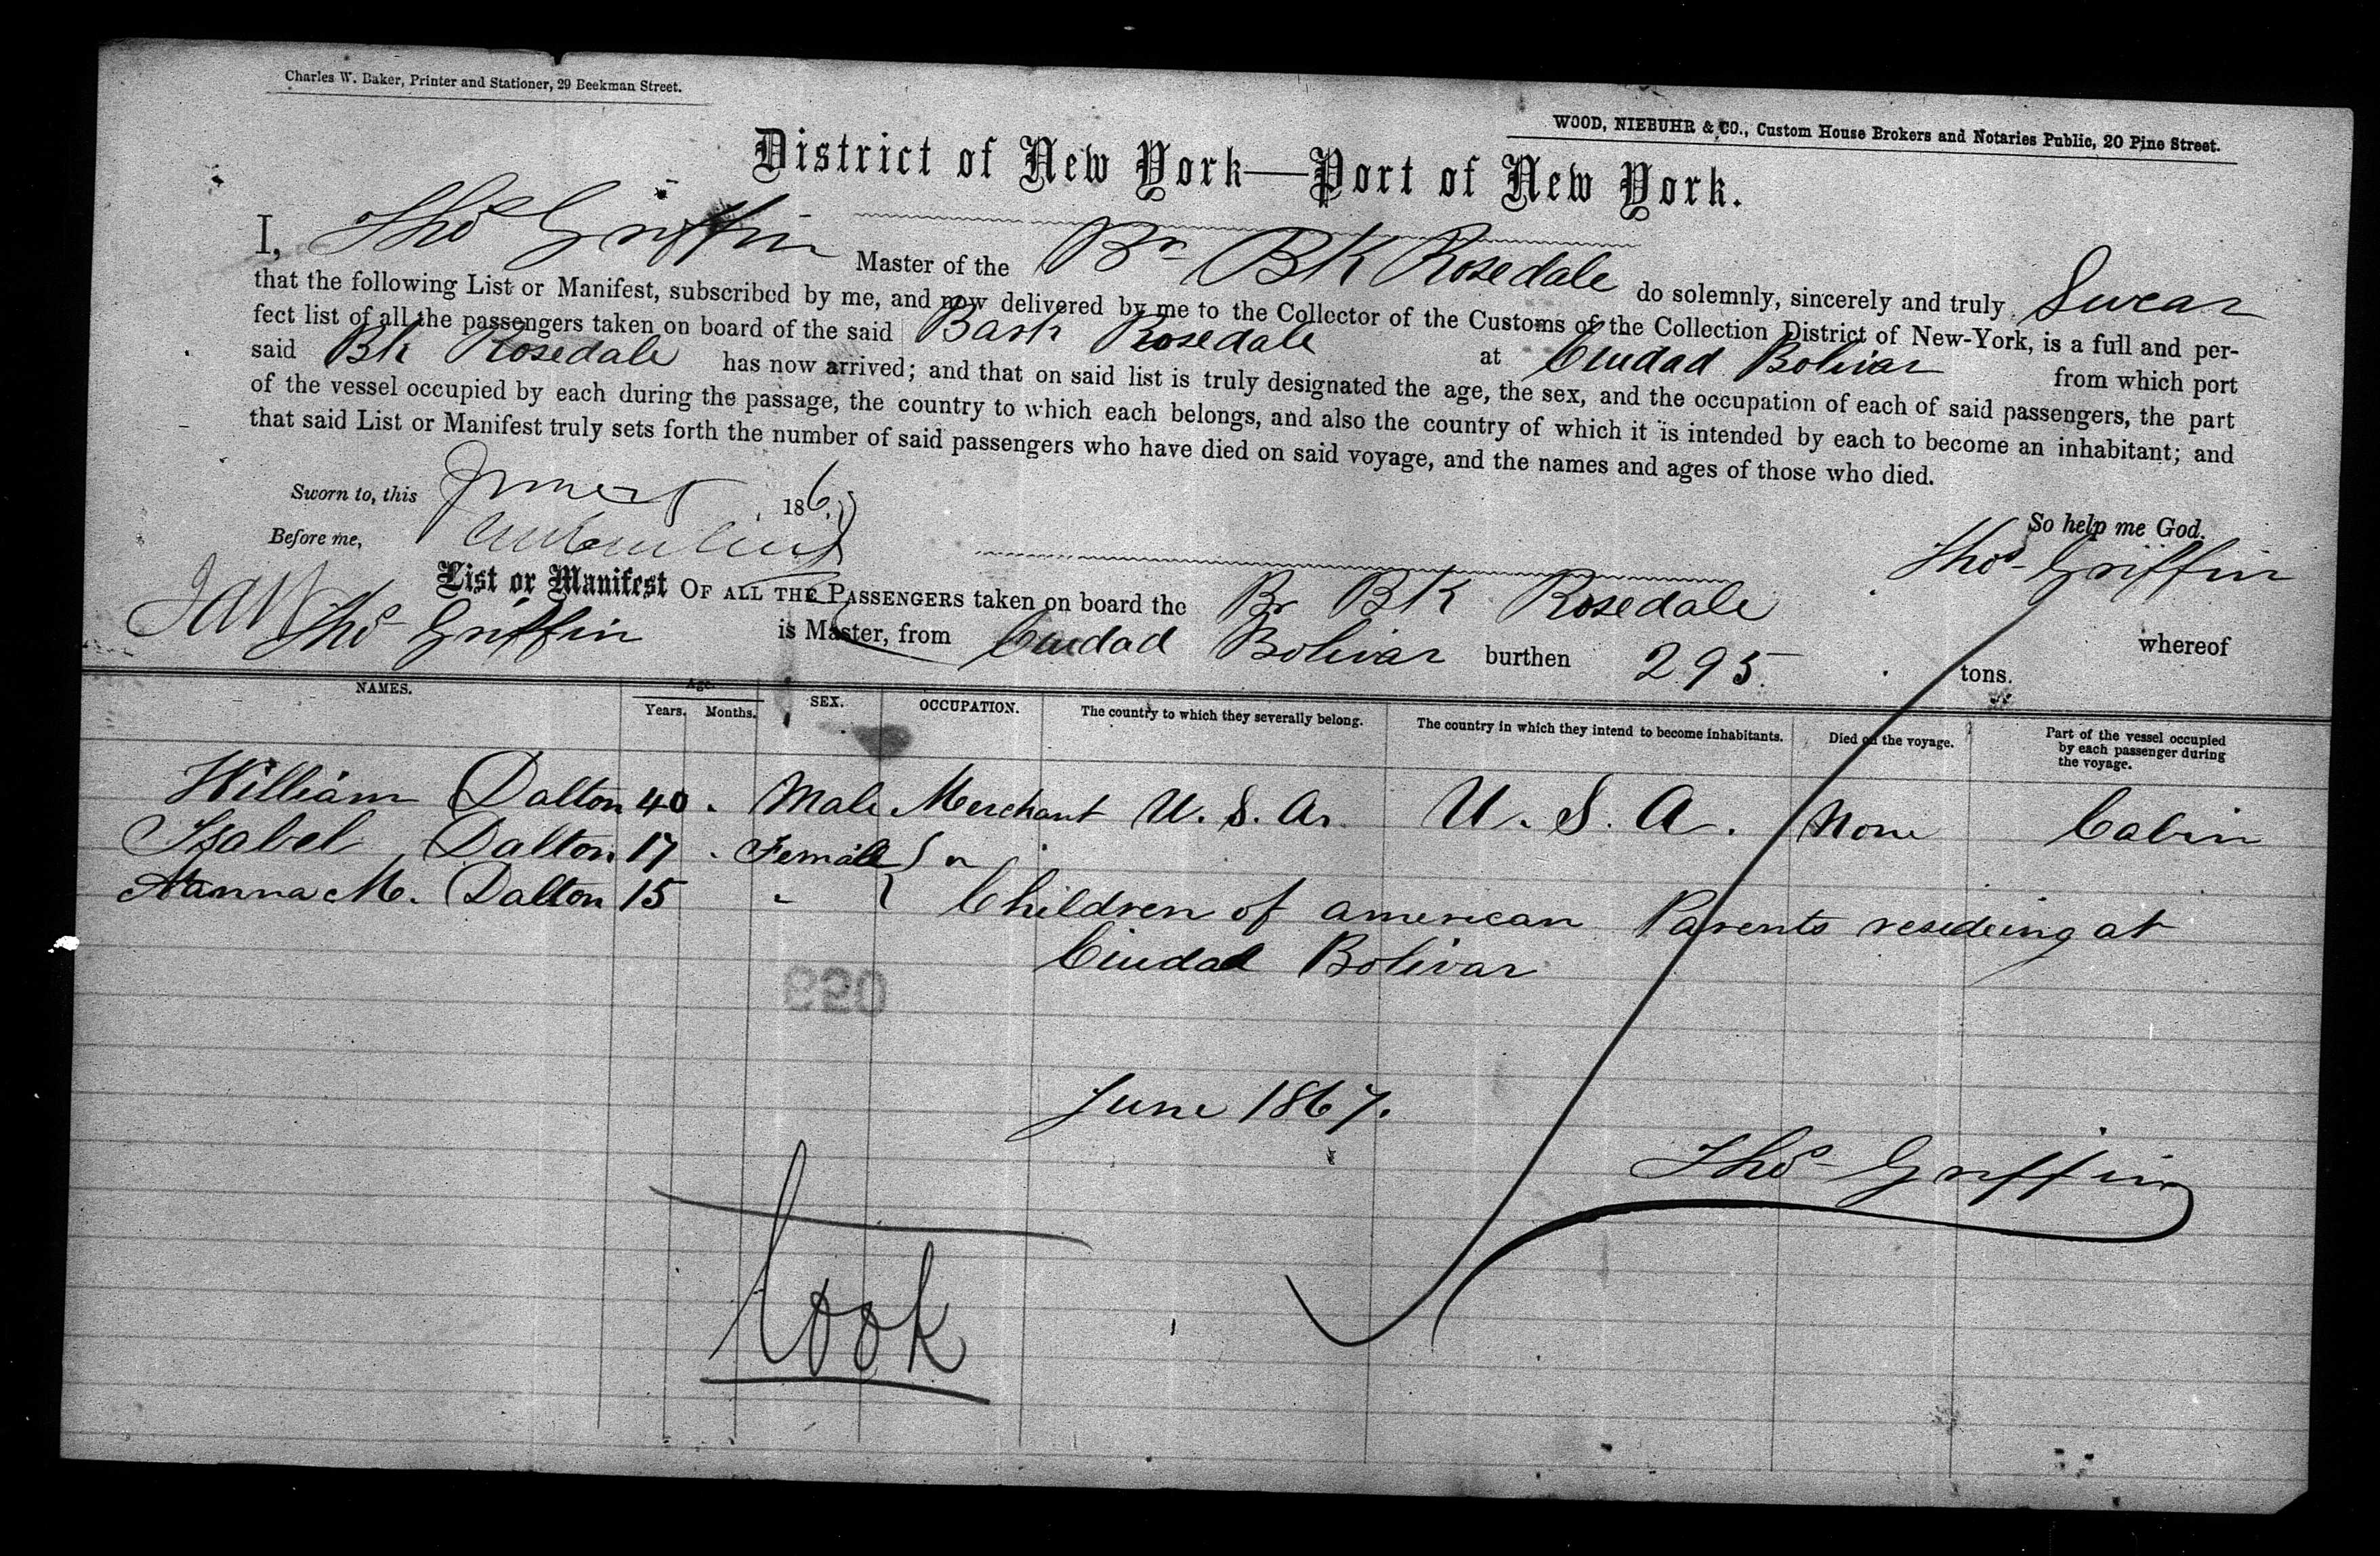 Charles W. Baker, Printer and Stationer, 29 Beekman Street.
WOOD, NIEBUHR & CO., Custom House Brokers and Notaries Public, 20 Pine Street.
District of New York—Port of New York.
I, Thos Griffin Master of the Br BK Rosedale do solemnly, sincerely and truly Swear
that the following List or Manifest, subscribed by me, and now delivered by me to the Collector of the Customs of the Collection District of New-York, is a full and per-
fect list of all the passengers taken on board of the said Bark Rosedale at Ciudad Bolivar from which port
said Bk Rosedale has now arrived; and that on said list is truly designated the age, the sex, and the occupation of each of said passengers, the part
of the vessel occupied by each during the passage, the country to which each belongs, and also the country of which it is intended by each to become an inhabitant; and
that said List or Manifest truly sets forth the number of said passengers who have died on said voyage, and the names and ages of those who died.
Sworn to, this June 186
So help me God.
Before me,
Thos Griffin
List or Manifest OF ALL THE PASSENGERS taken on board the Br BK Rosedale whereof
Thos Griffin is Master, from Ciudad Bolivar burthen 295 tons.
NAMES. Age. Years. Months. SEX. OCCUPATION. The country to which they severally belong. The country in which they intend to become inhabitants. Died on the voyage. Part of the vessel occupied by each passenger during the voyage.
William Dalton 40 . Male Merchant U. S. A. U. S. A. None Cabin
Isabel Dalton 17 . Female "
Nanna M. Dalton 15 " Children of american Parents resideing at
Ciudad Bolivar
June 1867.
Thos Griffin
took